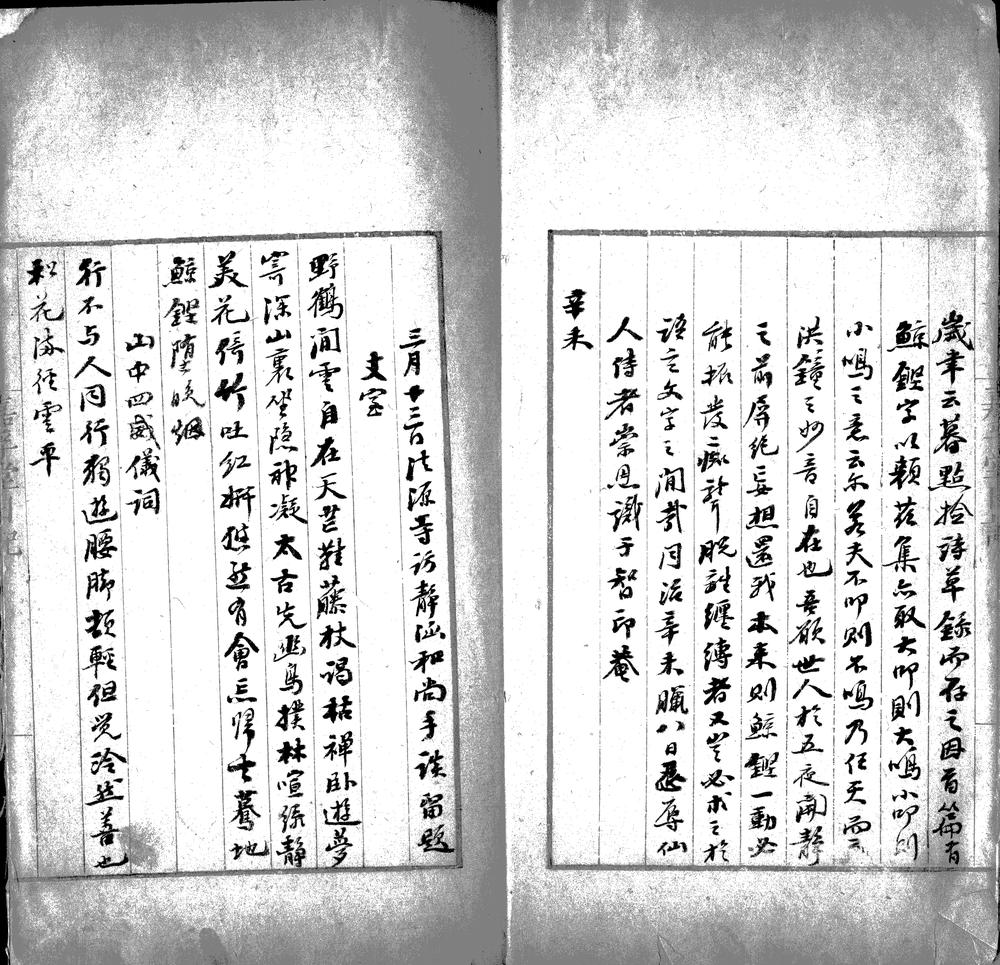 歲聿云暮點拾詩草錄而存之因首篇有
鯨鏗字以顏茲集亦取大叩則大鳴小叩則
小鳴之意云尔若夫不叩則不鳴乃任天而
洪鐘之妙音自在也吾願世人於五夜闃靜
之前屏絕妄想還我本來則鯨鏗一動必
能振發癡聾脫離纏縛者又豈必求之於
語言文字之間哉同治辛未臘八日忍辱仙
人侍者崇恩識于智印菴
辛未
三月廿三日法源寺訪靜涵和尚手談留題
丈室
野鶴閒雲自在天芒鞋藤杖謁枯禪卧遊夢
寄深山裏坐隐神凝太古先幽鳥撲林喧綠靜
美花倚竹吐红妍悠然有會忘歸去驀地
鯨鏗堕晚烟
山中四威儀詞
行不与人同行獨遊腰脚頓輕但觉泠然善也
松花 徑雲平